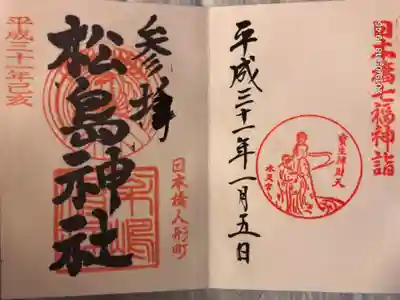 日本橋七福神詣
寳生辨財天
水天宮
平成三十一年一月五日
参拝
松島神社
日本橋人形町
平成三十一年己亥